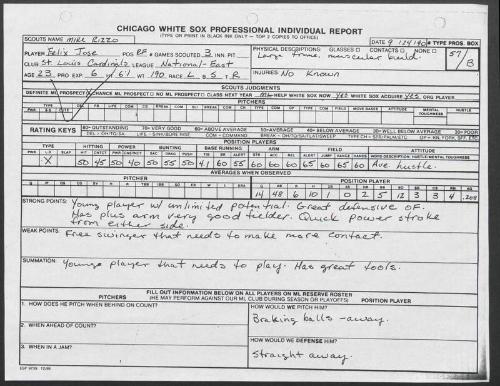 CHICAGO WHITE SOX PROFESSIONAL INDIVIDUAL REPORT
(TYPE OR PRINT IN BLACK INK ONLY - TOP 2 COPIES TO OFFICE)
SCOUTS NAME Mike Rizzo DATE 9/24/90 TYPE PROS. BOX
PLAYER Felix Jose POS RF # GAMES SCOUTED 3 INN. PIT
CLUB St. Louis Cardinals LEAGUE National-East
AGE 23 PRO EXP. 6 HT 6'1" WT. 190 RACE L B S T R
PHYSICAL DESCRIPTIONS GLASSES CONTACTS NONE
Large frame, muscular build
57/B
INJURIES: No Known
SCOUTS JUDGMENTS
DEFINITE ML PROSPECT CHANCE ML PROSPECT NO ML PROSPECT CLASS NEXT YEAR ML HELP WHITE SOX NOW yes WHITE SOX ACQUIRE yes ORG PLAYER
PITCHERS
RATING KEYS 80-OUTSTANDING 70-VERY GOOD 60-ABOVE AVERAGE 50-AVERAGE 40-BELOW AVERAGE 30-WELL BELOW AVERAGE 20-POOR
POSITION PLAYERS
TYPE HITTING POWER BUNTING BASE RUNNING ARM FIELD ATTITUDE
X 50 45 50 40 50 55 50 4.1 60 55 60 60 65 60 65 60 Ave. hustle.
AVERAGES WHEN OBSERVED
PITCHER POSITION PLAYER
14 48 6 10 1 0 2 5 12 3 3 4 .208
STRONG POINTS: Young player w/ unlimited potential. Great defensive OF.
Has plus arm very good fielder. Quick power stroke
from either side.
WEAK POINTS: Free swinger that needs to make more contact.
SUMMATION: Younge player that needs to play. Has great tools.
FILL OUT INFORMATION BELOW ON ALL PLAYERS ON ML RESERVE ROSTER
(HE MAY PERFORM AGAINST OUR ML CLUB DURING SEASON OR PLAYOFFS)
PITCHERS POSITION PLAYER
1. HOW DOES HE PITCH WHEN BEHIND ON COUNT?
HOW WOULD WE PITCH HIM?
Braking balls - away.
2. WHEN AHEAD OF COUNT?
3. WHEN IN A JAM?
HOW WOULD WE DEFENSE HIM?
Straight away.